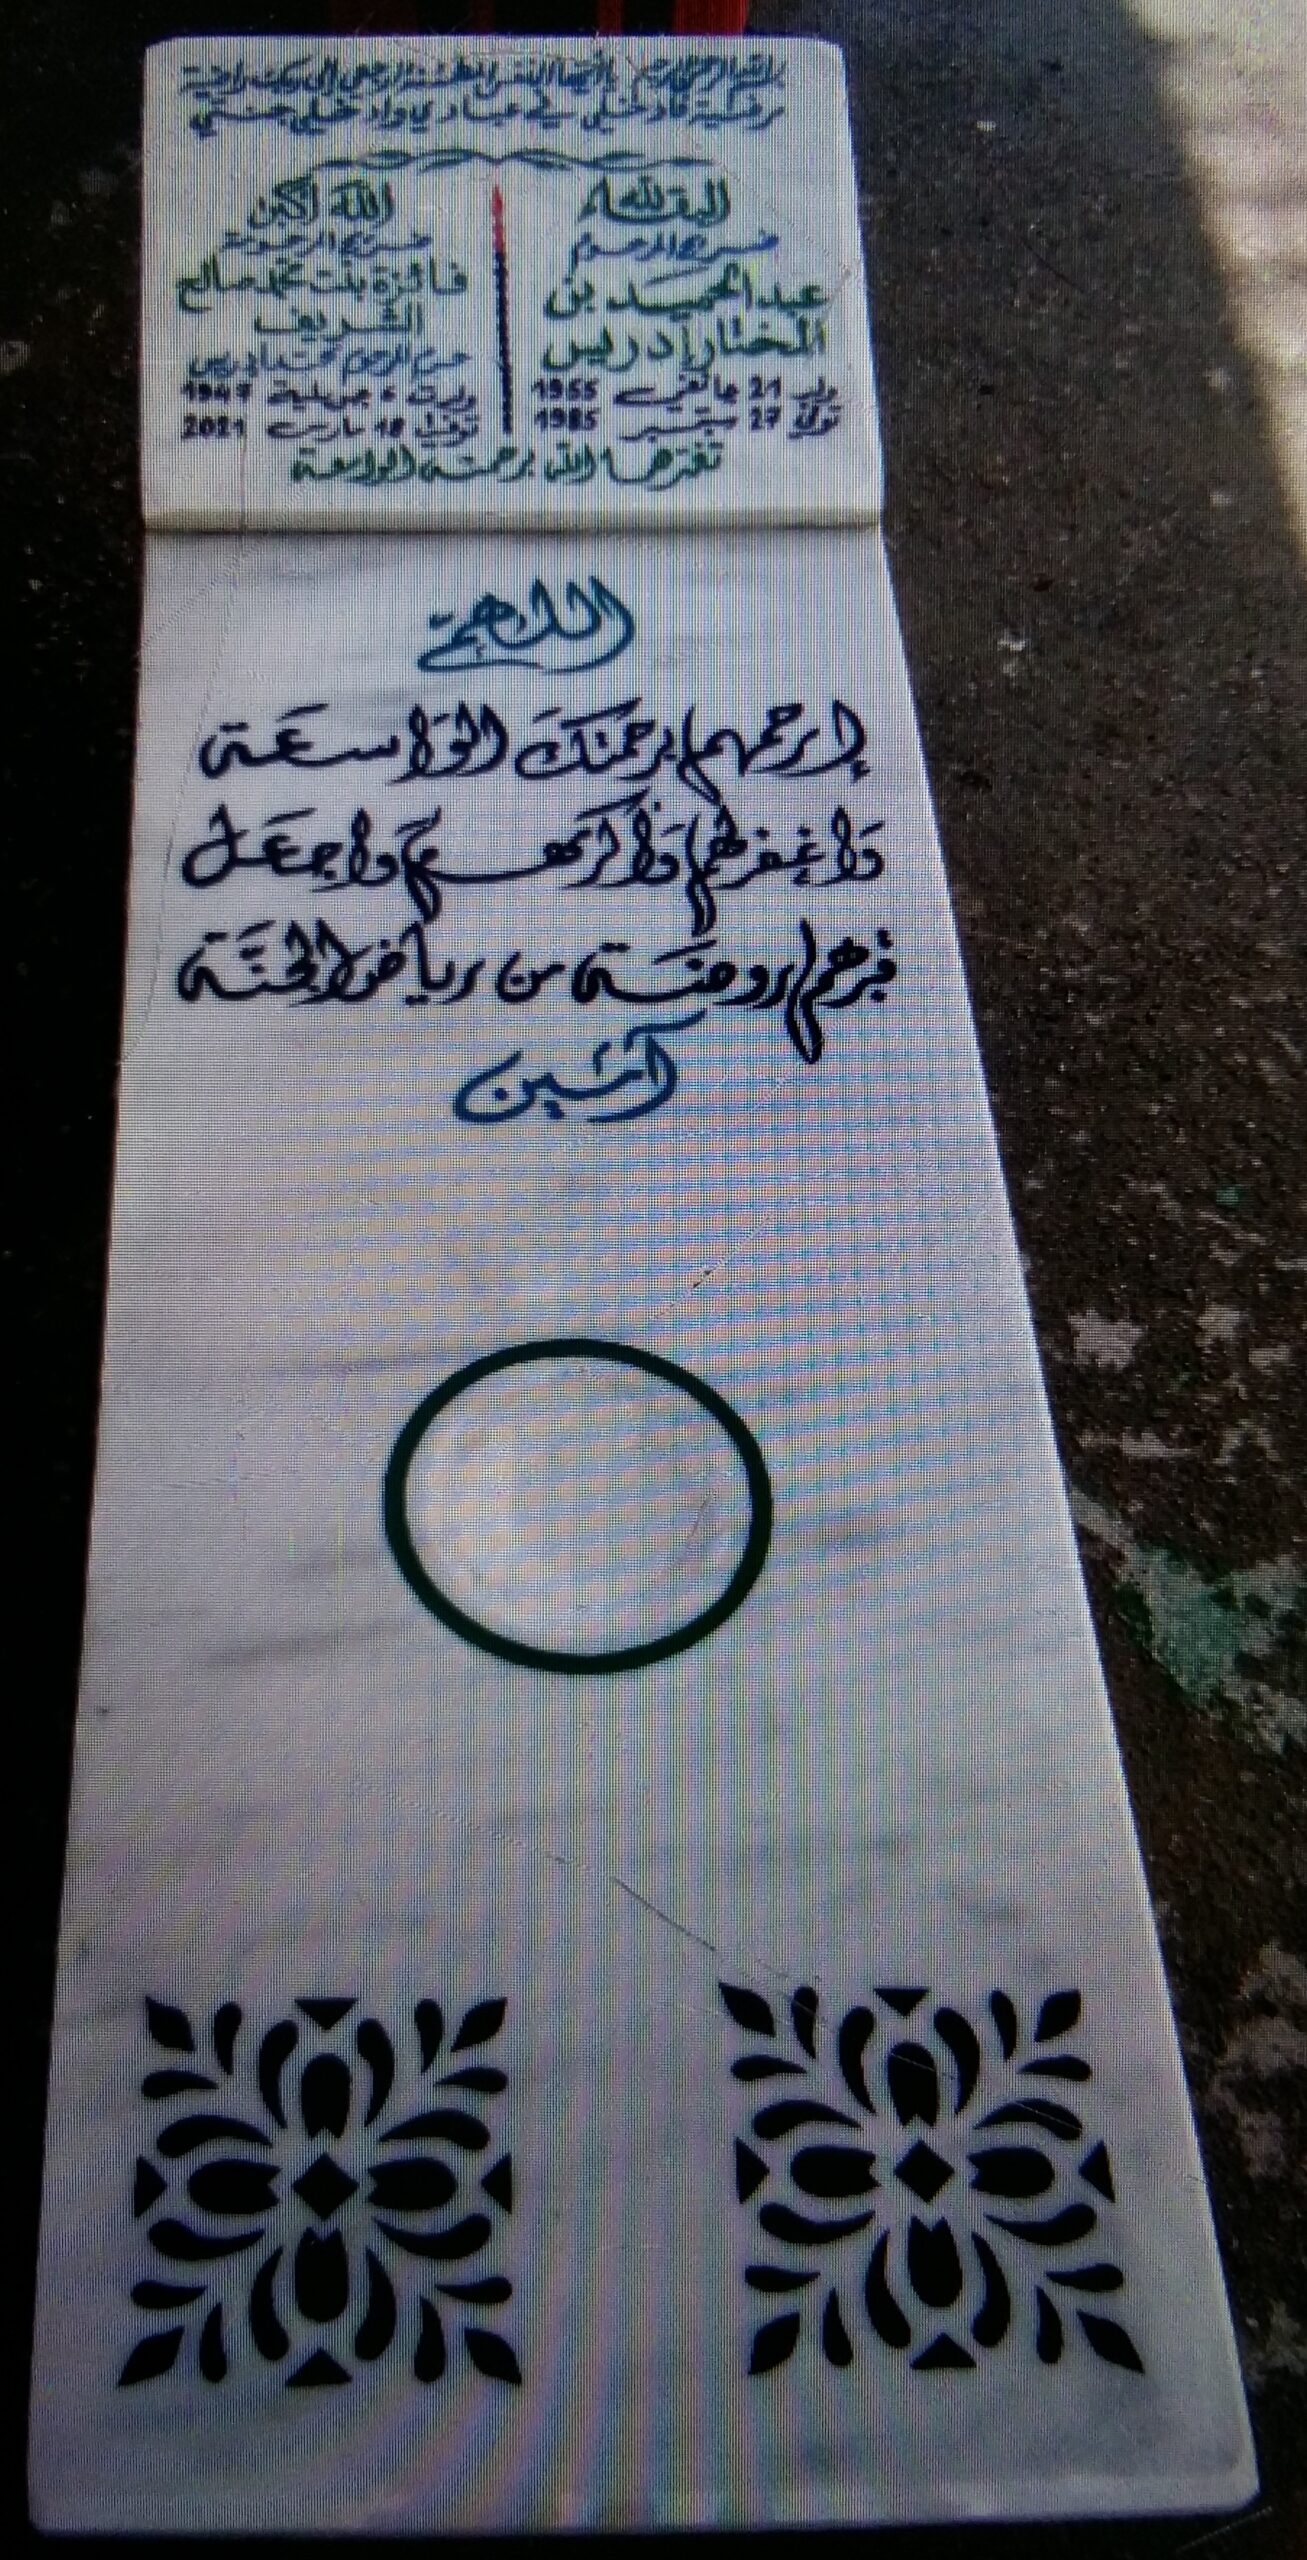 بسم الله الرحمن الرحيم يا أيتها النفس المطمئنة ارجعي إلى ربك راضية
مرضية فادخلي في عبادي وادخلي جنتي
البقاء لله
ضريح المرحوم
عبد الحميد بن
المختار إدريس
ولد 21 جانفي 1955
توفي 27 سبتمبر 1985
الله أكبر
ضريح المرحومة
فائزة بنت محمد صالح
الشريف
حرم المرحوم محمد إدريس
ولدت 6 جويلية 1947
توفيت 18 مارس 2021
تغمدهما الله برحمته الواسعة
اللهم
إرحمهم برحمتك الواسعة
واغفر لهم وأكرمهم واجعل
قبرهم روضة من رياض الجنة
آمين